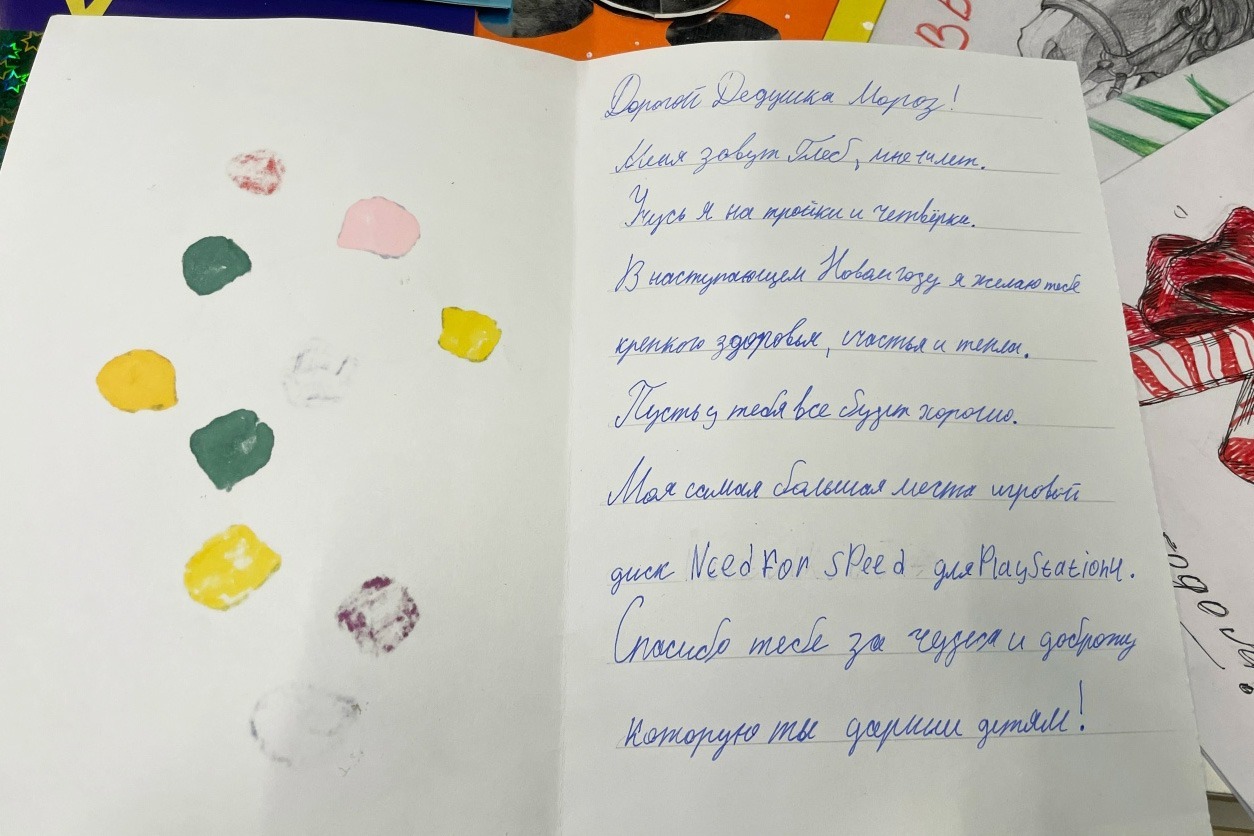 ВЫ
Дорогой Дедушка Мороз!
Меня зовут Глеб, мне лет.
Учусь я на тройки и четвёрки.
В наступающем Новом году я желаю тебе
крепкого здоровья, счастья и тепла.
Пусть у тебя все будет хорошо.
Моя самая большая мечта игровой
диск Need For sPeed для PlayStation4.
Спасибо тебе за чудеса и доброту
которую ты даришь детям!